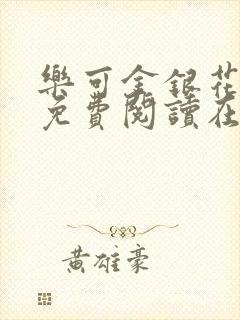 樂可金銀花
免費閱讀在
黃雄豪